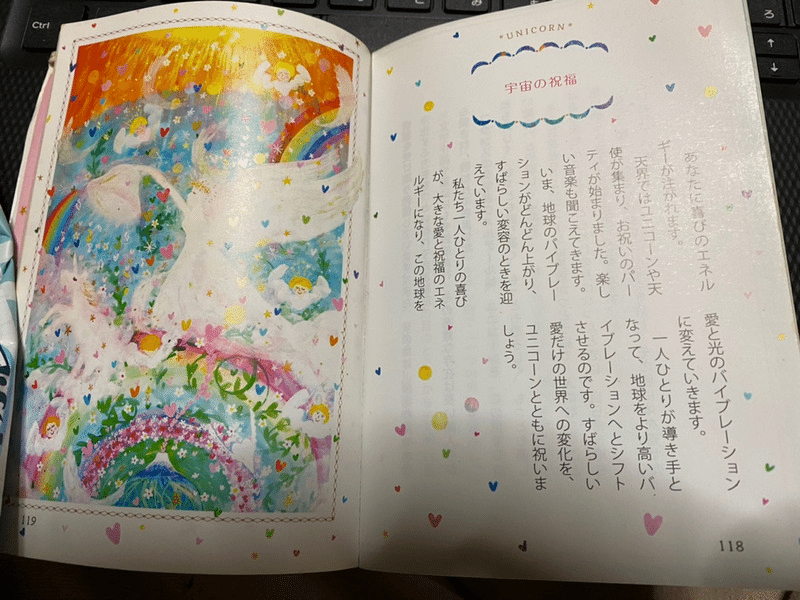 *UNICORN*
宇宙の祝福
あなたに喜びのエネル
ギーが注がれます。
天界ではユニコーンや天
使が集まり、お祝いのパー
ティが始まりました。楽し
い音楽も聞こえてきます。
いま、地球のバイブレー
ションがどんどん上がり、
すばらしい変容のときを迎
えています。
私たち一人ひとりの喜び
が、大きな愛と祝福のエネ
ルギーになり、この地球を
愛と光のバイブレーション
に変えていきます。
一人ひとりが導き手と
なって、地球をより高いバ
イブレーションへとシフト
させるのです。すばらしい
愛だけの世界への変化を、
ユニコーンとともに祝いま
しょう。
118
119
Ctrl
ろ
↑
↓